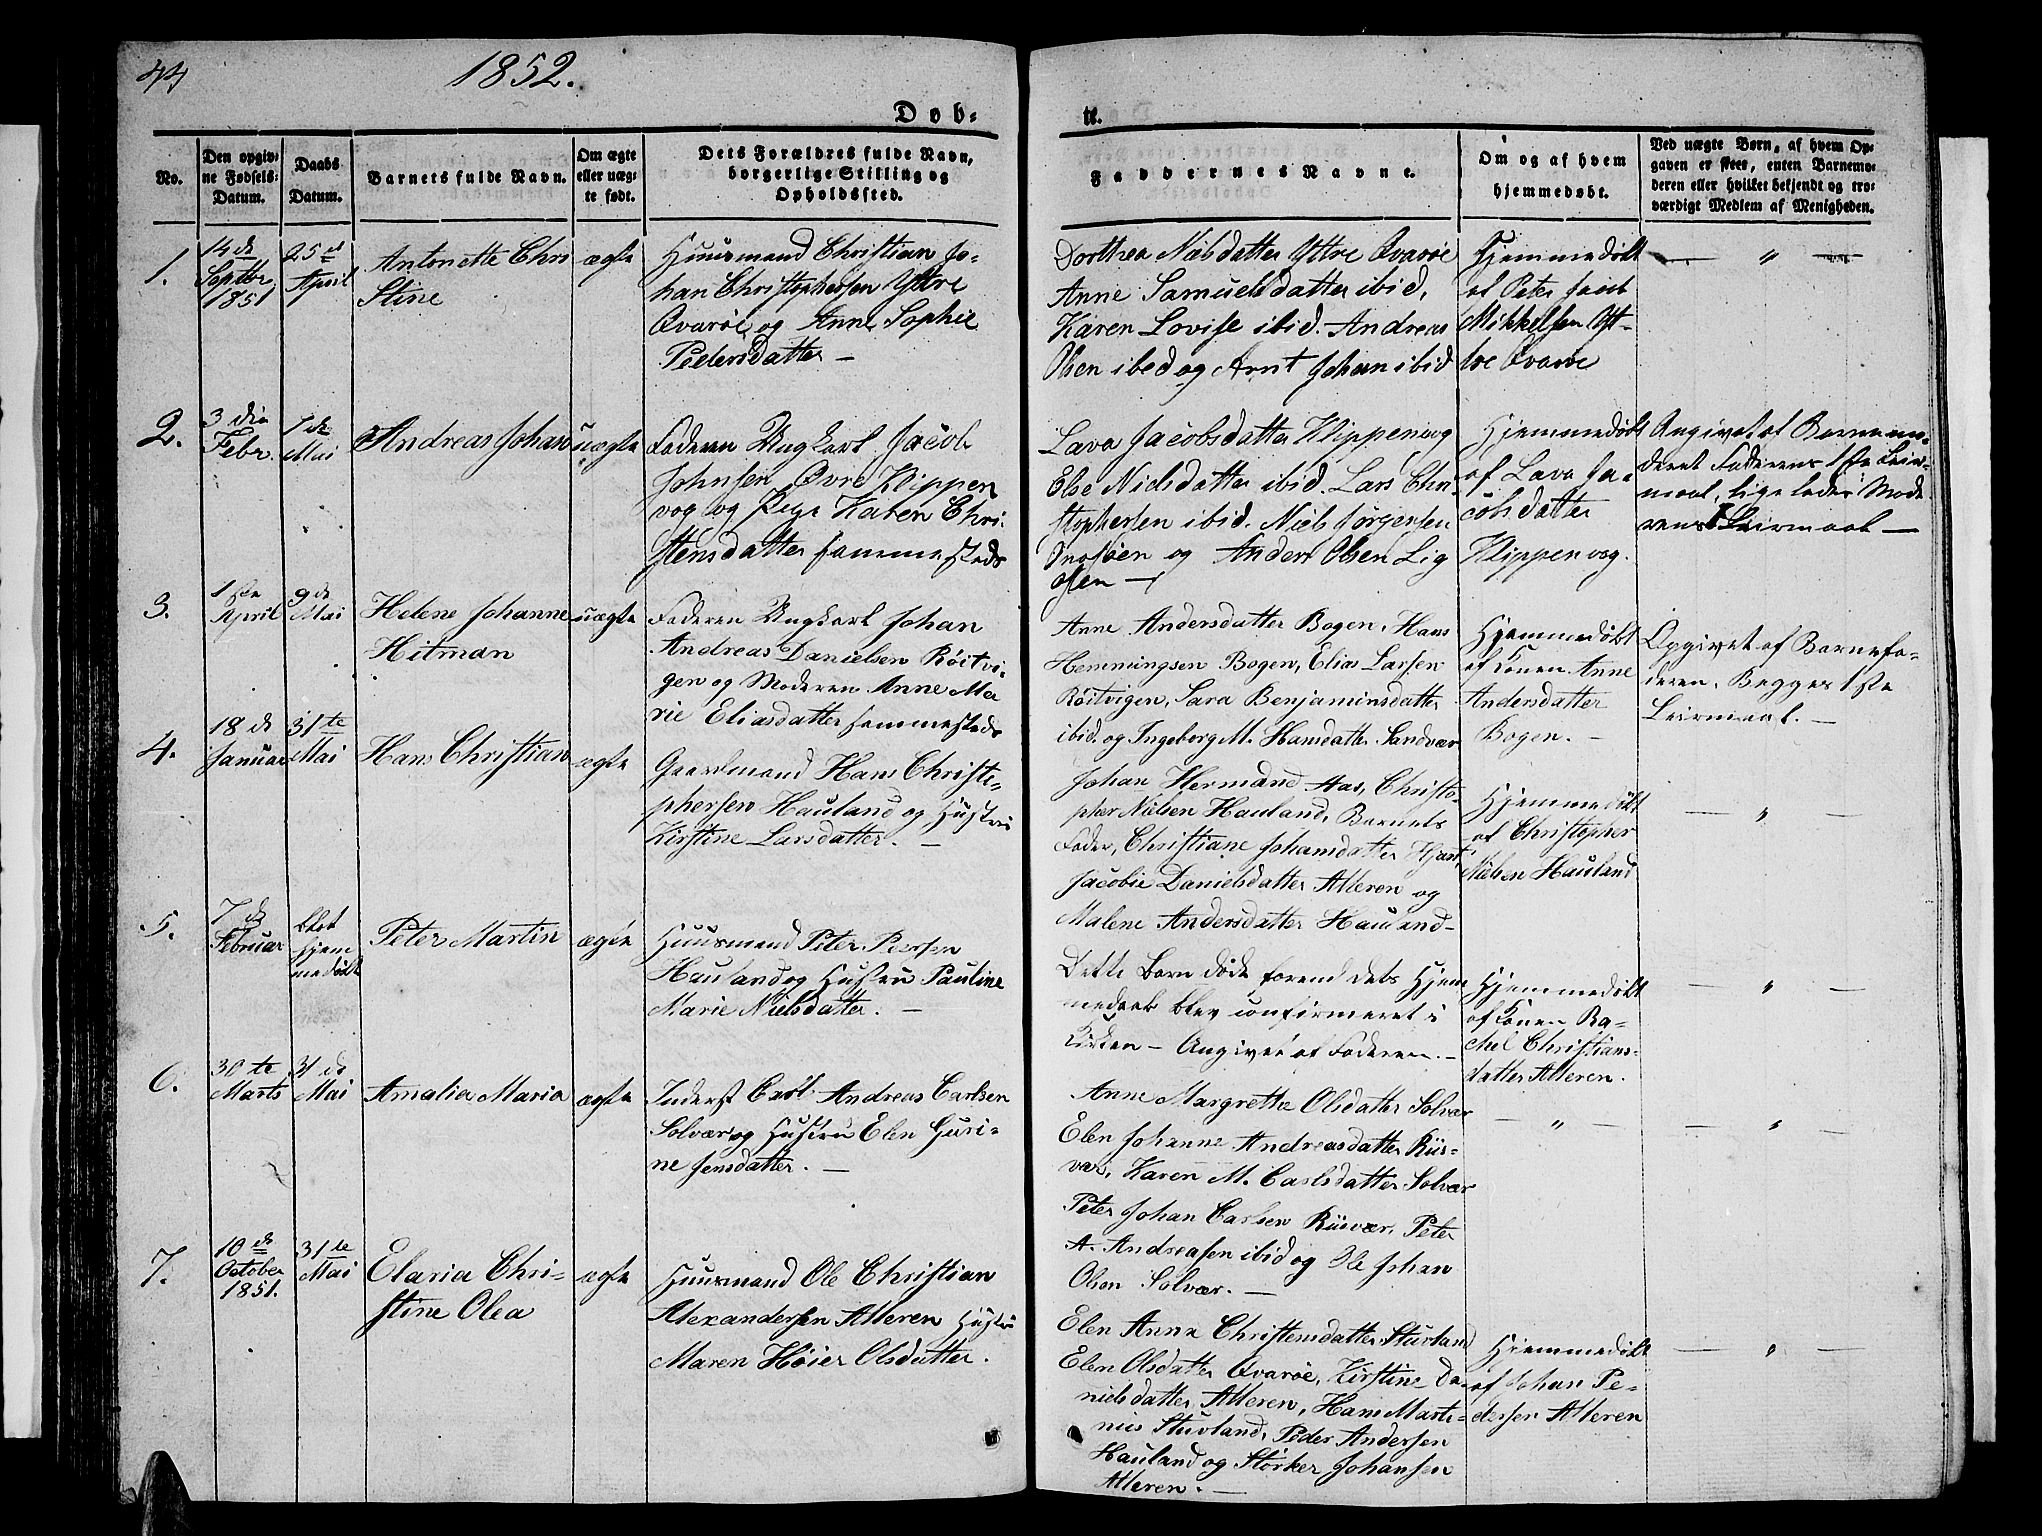 44
1852.
Døb-
te.
No.
Den opgiv-
ne Fødsels-
Datum.
Daabs
Datum.
Barnets fulde Navn.
Om ægte
eller uæg-
te født.
Dets Forældres fulde Navn,
borgerlige Stilling og
Opholdssted.
Faddernes Navne.
Om og af hvem
hjemmedøbt.
Ved uægte Børn, af hvem Op-
gaven er skeet, enten Barnemo-
deren eller hvilket bekjendt og tro-
værdigt Medlem af Menigheden.
1.
14 d
Septbr
1851
25 d
April
Antonette Chri
stine
ægte
Huusmand Christian Jo-
han Christophersen Yttre
Qvarøe og Anne Sophie
Pedersdatter —
Dorthea Nielsdatter Yttre Qvarøe
Anne Samuelsdatter ibid,
Karen Lovise ibid. Andreas
Olsen ibid og Arnt Johan ibid
Hjemmedøbt
af Peter Jacob
Mikkelsen Yt-
tre Qvarøe
— " —
2.
3 die
Febr.
1 de
Mai
Andreas Johan
uægte
Faderen Ungkarl Jacob
Johnsen Øvre Klippen
vog og Pige Karen Chri-
stensdatter sammesteds
Lava Jacobsdatter Klippenvog
Else Nielsdatter ibid. Lars Chri-
stophersen ibid. Niels Jørgensen
og Anders Olsen Lig
osen —
Hjemmedøbt
af Lava Ja-
cobsdatter
Klippenvog.
Angivet af Barnemo-
deren Faderens 1ste Leier-
maal, ligeledes Mode
rens 1 Leiermaal —
3.
1ste
April
9 d
Mai
Helene Johanne
Hitman
uægte
Faderen Ungkarl Johan
Andreas Danielsen Røitvi-
gen og Moderen Anne Ma
rie Eliasdatter sammesteds
Anne Andersdatter Bogen, Hans
Hemmingsen Bogen, Elias Larsen
Røitvigen, Sara Benjaminsdatter
ibid. og Ingeborg M. Hansdatter Sandvær
Hjemmedøbt
af Konen Anne
Andersdatter
Bogen. —
Opgivet af Barnefa-
deren. Begges 1ste
Leiermaal. —
4.
18 d
Januar
31te
Mai
Hans Christian
ægte
Gaardmand Hans Christo-
phersen Hauland og Hustru
Kirstine Larsdatter. —
Johan Hermand Aas, Christo-
pher Nielsen Hauland, Barnets
Fader, Christiane Johansdatter
Jacobie Danielsdatter Alteren og
Malene Andersdatter Hauland—
Hjemmedøbt
af Christopher
Nielsen Hauland
— " —
5.
7 d
Februar
blot
hjem
medøbt
Peter Martin
ægte
Huusmand Peter Peersen
Hauland og Hustru Pauline
Marie Nielsdatter. —
Dette Barn døde forend dets Hjem
medaab blev confirmeret i
Kirken — Angivet af Faderen. —
Hjemmedøbt
af Konen Ra-
chel Christians-
datter Alteren.
— " —
6.
30te
Marts
31 d
Mai
Amalia Maria
ægte
Inderst Carl Andreas Carlsen
Solvær og Hustru Elen Guri-
ne Jensdatter. —
Anne Margrethe Olsdatter Solvær
Elen Johanne Andreasdatter Riis-
vær, Karen M. Carlsdatter Solvær
Peter Johan Carlsen Riisvær, Peter
A. Andreasen ibid og Ole Johan
Olsen Solvær. —
— " —
— " —
7.
10 d
October
1851.
31te
Mai
Elaria Chri-
stine Olea
ægte
Huusmand Ole Christian
Alexandersen Alteren Hustru
Maren Høier Olsdatter.
Elen Anna Christensdatter Stuvland
Elen Olsdatter Qvarøe, Kirstine Da-
nielsdatter Alteren, Hans Marti-
nus Stuvland, Peder Andersen
Hauland og Størker Johansen
Alteren. —
Hjemmedøbt
af Johan Pe-
dersen Alteren
— " —